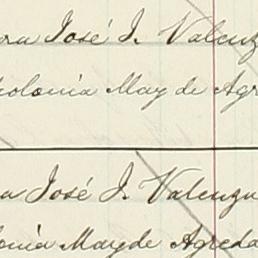 ra José I. Valenz
colonia May de Agr
a José I. Valenzu
lonia May de Agreda